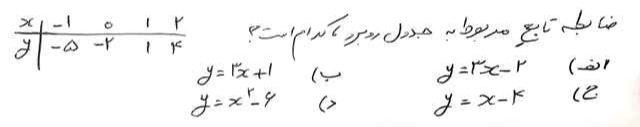 ضابطه تابع مربوط به جدول روبرو کدام است؟
x | -۱ ۰ ۱ ۲
y | -۵ -۲ ۱ ۴
الف) y = ۳x - ۲ ب) y = ۳x + ۱
ج) y = x - ۴ د) y = x^۲ - ۶